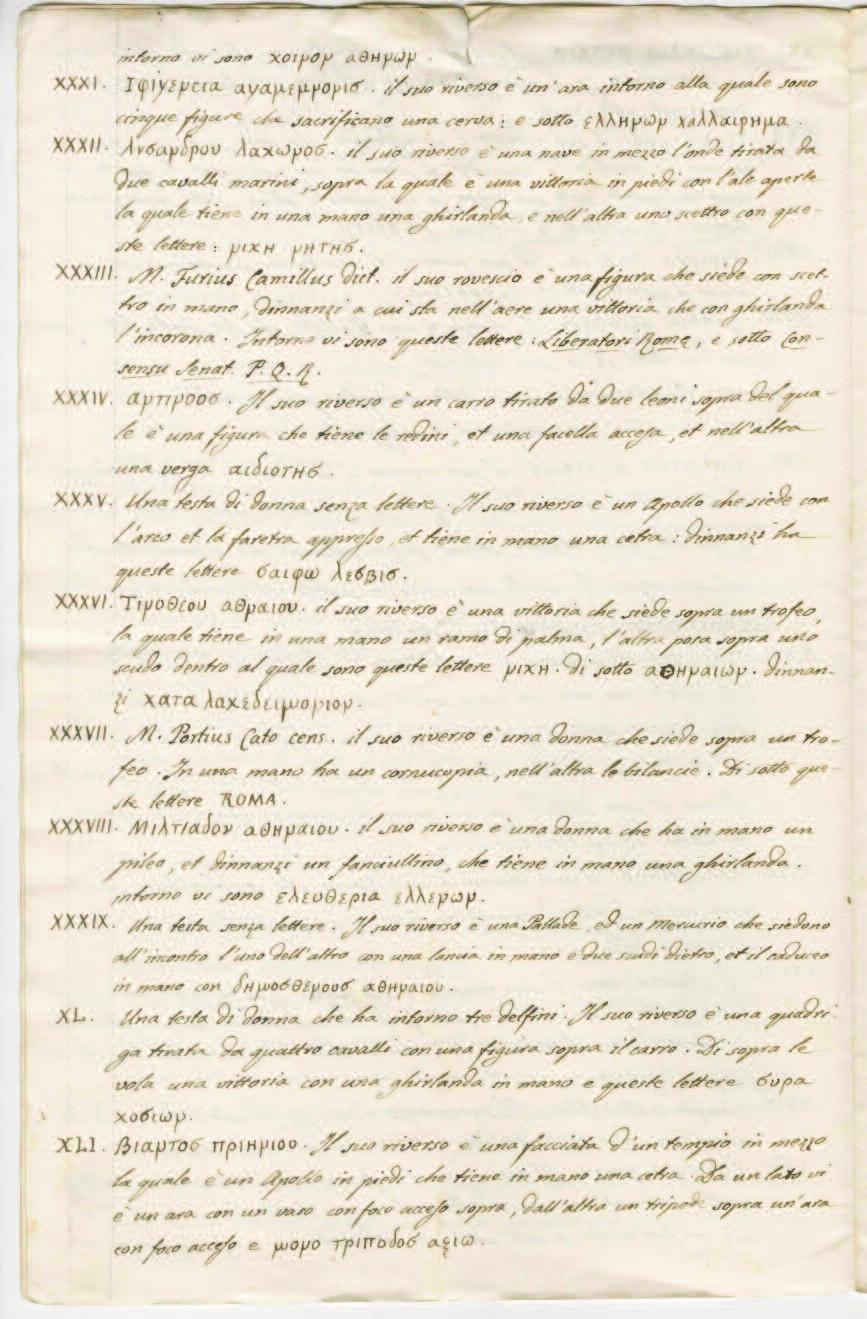 intorno vi sono χοιρον αθηρων.
XXXI. Ιφιγερεια αγαμεμρορισ. il suo riverso è un'ara intorno alla quale sono
cinque figure che sacrificano una cerva: e sotto ελληρωρ χαλλαιρημα.
XXXII. Λυσαρδρου λαχωροσ. il suo riverso è una nave in mezzo l'onde tirata da
due cavalli marini, sopra la quale è una vittoria in piedi con l'ale aperte
la quale tiene in una mano una ghirlanda, e nell'altra uno scettro con que-
ste lettere: ριχη ρητησ.
XXXIII. M. Furius Camillus dict. il suo rovescio è una figura che siede con scet-
tro in mano, dinnanzi a cui sta nell'aere una vittoria che con ghirlanda
l'incorona. Intorno vi sono queste lettere: Liberatori Romę, e sotto Con-
sensu Senat. P. Q. R.
XXXIV. αρτιροοσ. Il suo riverso è un carro tirato da due leoni sopra del qua-
le è una figura che tiene le redini, et una facella accesa, et nell'altra
una verga αιδιοτησ.
XXXV. Una testa di donna senza lettere. Il suo riverso è un Apollo che siede con
l'arco et la faretra appresso, et tiene in mano una cetra: dinnanzi ha
queste lettere σαιφω λεσβισ.
XXXVI. Τιμοθεου αθραιου. il suo riverso è una vittoria che siede sopra un trofeo,
la quale tiene in una mano un ramo di palma, l'altra posa sopra uno
scudo dentro al quale sono queste lettere ριχη. di sotto αθηραιωρ. dinnan-
zi χατα λαχεδειμοριορ.
XXXVII. M. Portius Cato cens. il suo riverso è una donna che siede sopra un tro-
feo. In una mano ha un cornucopia, nell'altra le bilancie. Di sotto que-
ste lettere ROMA.
XXXVIII. Μιλτιαδον αθηραιου. il suo riverso è una donna che ha in mano un
pileo, et dinnanzi un fanciullino, che tiene in mano una ghirlanda.
intorno vi sono ελευθερια ελλερωρ.
XXXIX. Una testa senza lettere. Il suo riverso è una Pallade, ed un Mercurio che siedono
all'incontro l'uno dell'altro con una lancia in mano e due scudi dietro, et il caduceo
in mano con δημοσθερουσ αθηραιου.
XL. Una testa di donna che ha intorno tre delfini. Il suo riverso è una quadri
ga tirata da quattro cavalli con una figura sopra il carro. Di sopra le
vola una vittoria con una ghirlanda in mano e queste lettere συρα
χοσιωρ.
XLI. Βιαρτοσ πριηριου. Il suo riverso è una facciata d'un tempio in mezzo
la quale è un Apollo in piedi che tiene in mano una cetra. Da un lato vi
è un ara con un vaso con foco acceso sopra, dall'altra un tripode sopra un'ara
con foco acceso e μορο τριποδοσ αξιω.